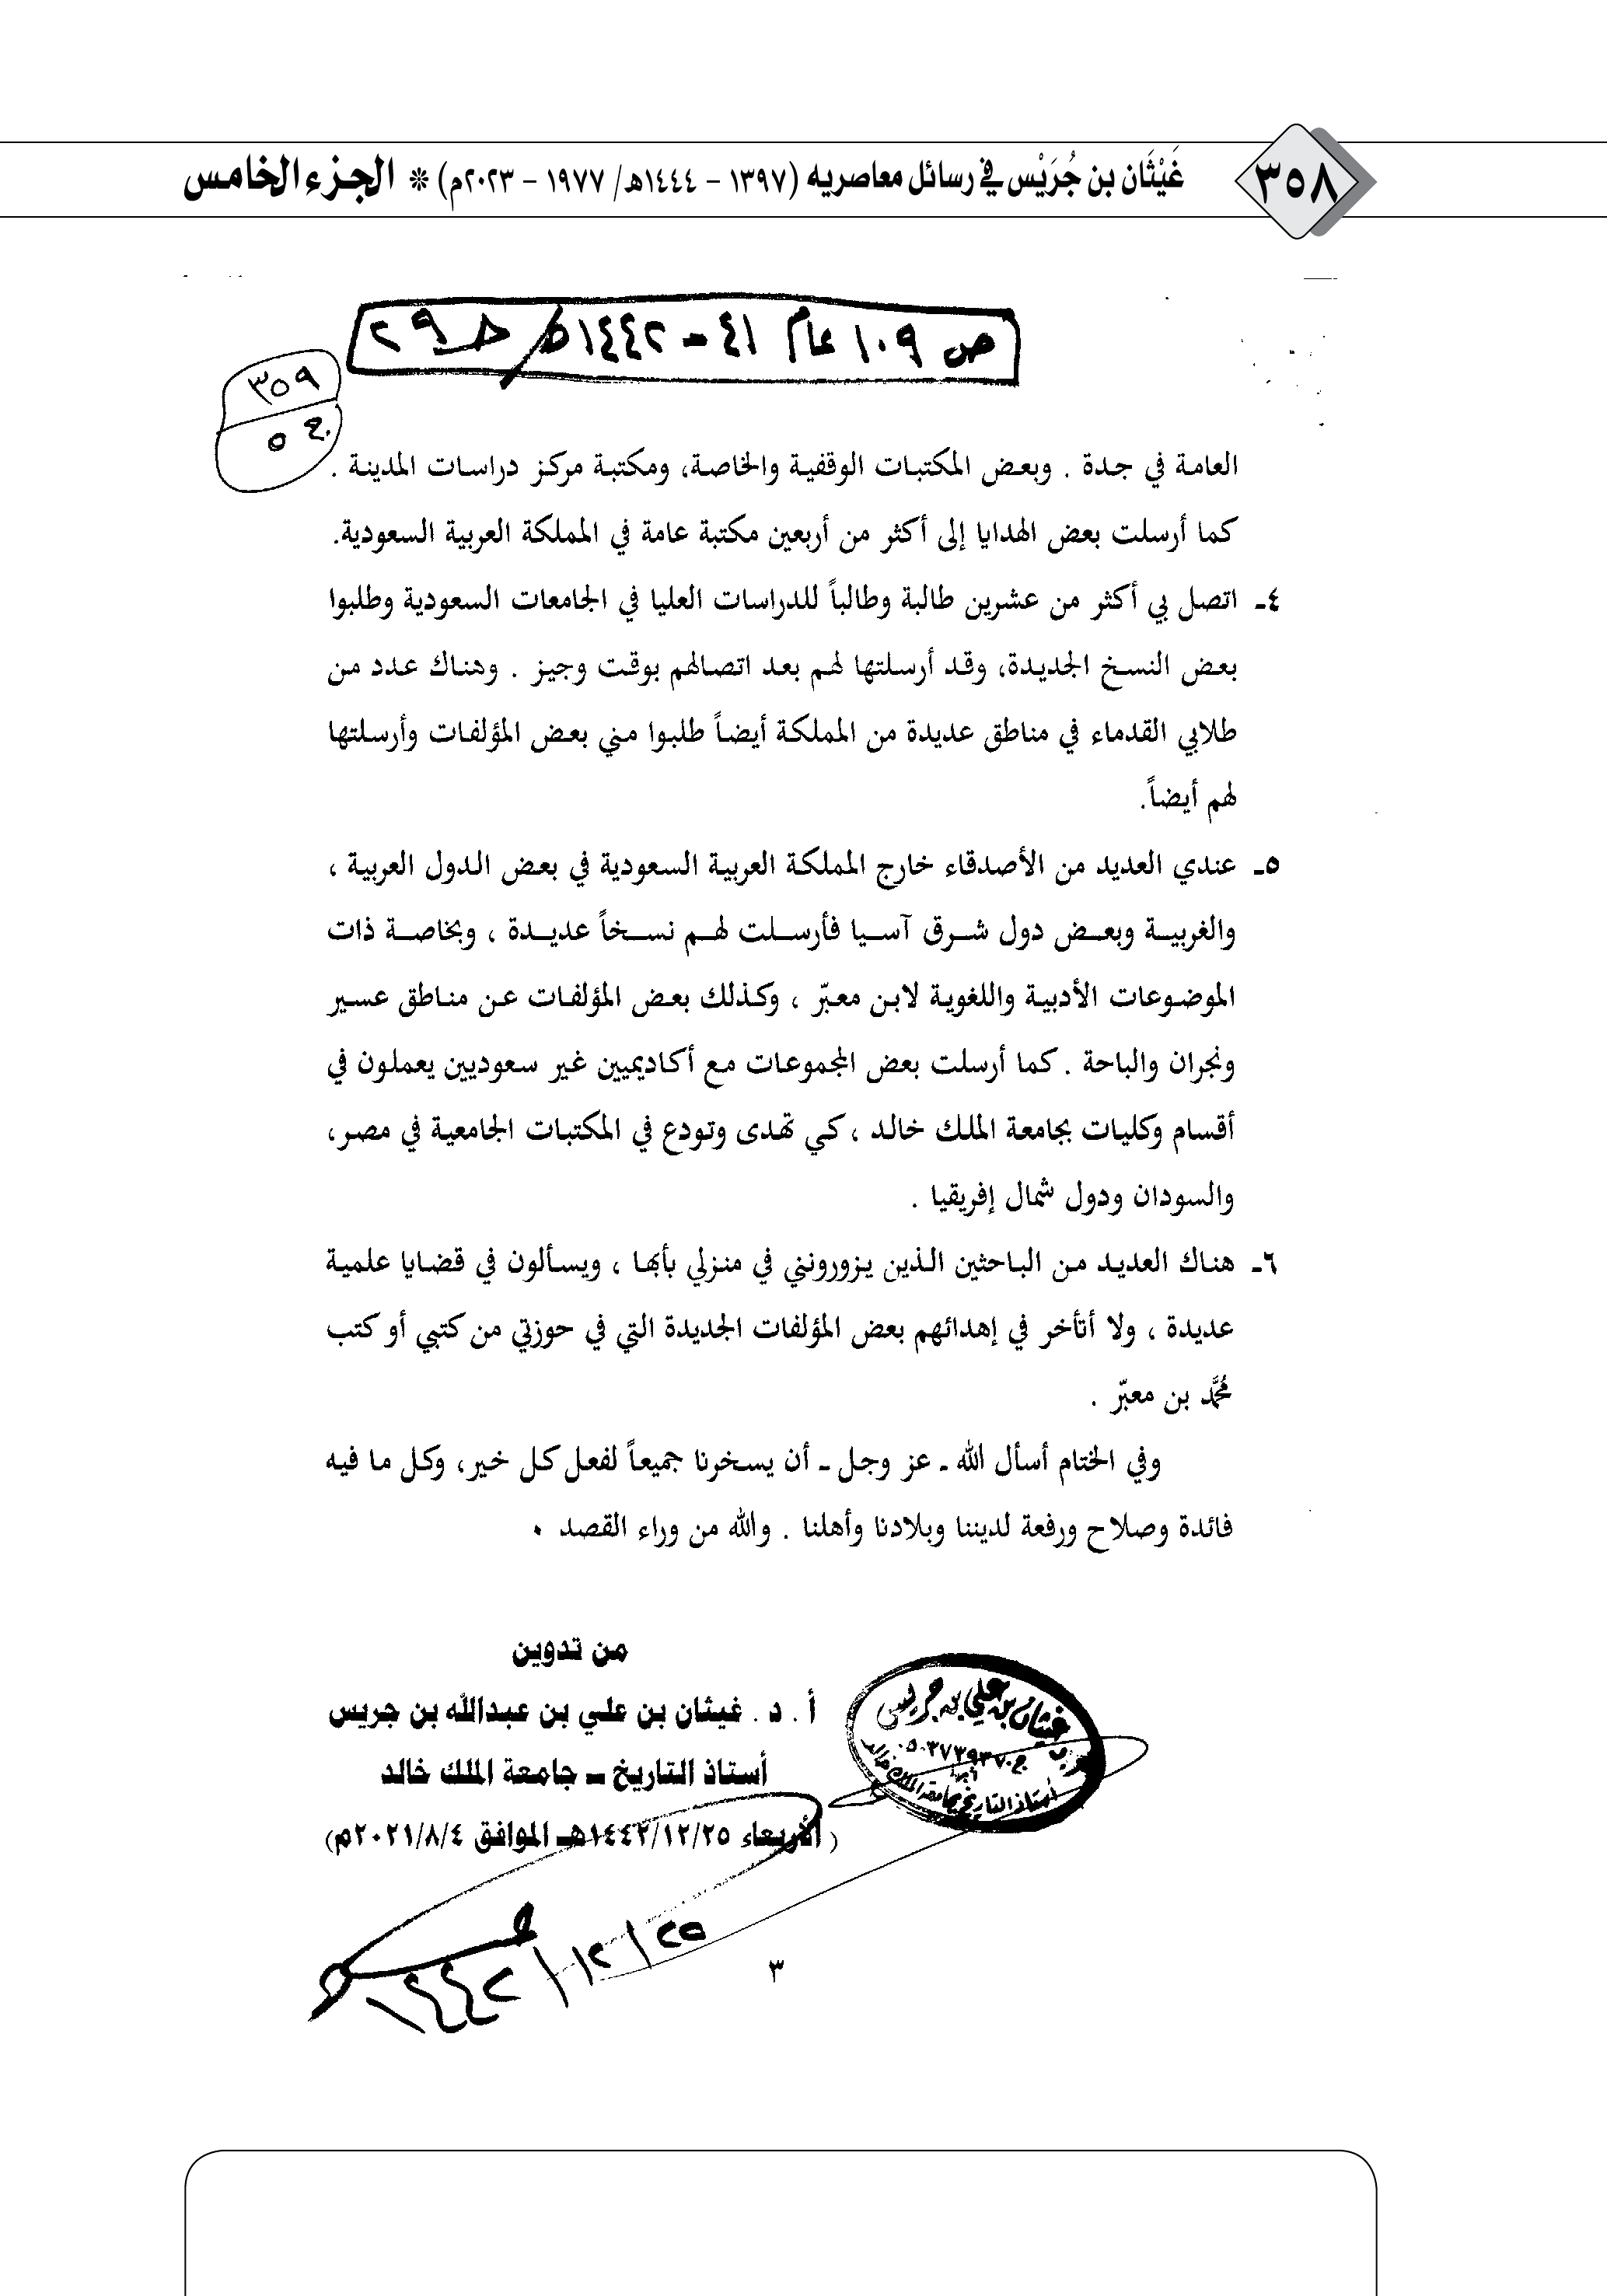 ٣٥٨
غَيْثَان بن جُرَيْس في رسائل معاصريه (١٣٩٧ – ١٤٤٤هـ/ ١٩٧٧ – ٢٠٢٣م) * الجزء الخامس
ص ١٠٩ عام ٤١ - ١٤٤٢هـ/ حـ ٢٩
٣٥٩
ج ٥
العامة في جدة . وبعض المكتبات الوقفية والخاصة، ومكتبة مركز دراسات المدينة .
كما أرسلت بعض الهدايا إلى أكثر من أربعين مكتبة عامة في المملكة العربية السعودية.
٤ـ اتصل بي أكثر من عشرين طالبة وطالباً للدراسات العليا في الجامعات السعودية وطلبوا
بعض النسخ الجديدة، وقد أرسلتها لهم بعد اتصالهم بوقت وجيز . وهناك عدد من
طلابي القدماء في مناطق عديدة من المملكة أيضاً طلبوا مني بعض المؤلفات وأرسلتها
لهم أيضاً.
٥ـ عندي العديد من الأصدقاء خارج المملكة العربية السعودية في بعض الدول العربية ،
والغربية وبعض دول شرق آسيا فأرسلت لهم نسخاً عديدة ، وبخاصة ذات
الموضوعات الأدبية واللغوية لابن معبّر ، وكذلك بعض المؤلفات عن مناطق عسير
ونجران والباحة . كما أرسلت بعض المجموعات مع أكاديميين غير سعوديين يعملون في
أقسام وكليات بجامعة الملك خالد ، كي تهدى وتودع في المكتبات الجامعية في مصر،
والسودان ودول شمال إفريقيا .
٦ـ هناك العديد من الباحثين الذين يزورونني في منزلي بأبها ، ويسألون في قضايا علمية
عديدة ، ولا أتأخر في إهدائهم بعض المؤلفات الجديدة التي في حوزتي من كتبي أو كتب
محمَّد بن معبّر .
وفي الختام أسأل الله ـ عز وجل ـ أن يسخرنا جميعاً لفعل كل خير، وكل ما فيه
فائدة وصلاح ورفعة لديننا وبلادنا وأهلنا . والله من وراء القصد ٠
من تدوين
أ . د . غيثان بن علي بن عبدالله بن جريس
أستاذ التاريخ ـ جامعة الملك خالد
( الأربعاء ١٤٤٢/١٢/٢٥هـ الموافق ٢٠٢١/٨/٤م)
غيثان بن علي بن جريس
ج ٠٥٠٣٧٣٩٣٧٠
أبها
أستاذ التاريخ بجامعة الملك خالد
٢٥/ ١٢/ ١٤٤٢
٣